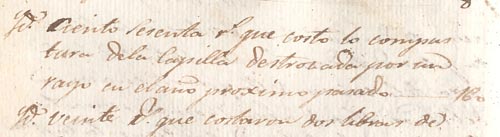 Yd. Ciento Sesenta rs. que costo la compos
tura dela Capilla destrozada por un
rayo en el año proximo pasado 160
Yd. veinte rs. que costaron dos libras de